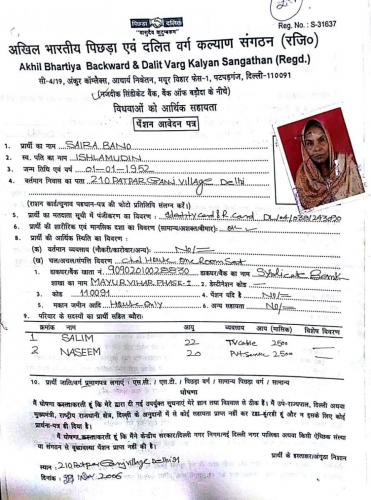 पिछड़ा दलित
"वासुदैव कुटुम्बकम"
Reg. No. : S-31637
अखिल भारतीय पिछड़ा एवं दलित वर्ग कल्याण संगठन (रजि०)
Akhil Bhartiya Backward & Dalit Varg Kalyan Sangathan (Regd.)
सी-4/19, अंकुर कॉम्लैक्स, आचार्य निकेतन, मयूर विहार फेस-1, पटपड़गंज, दिल्ली-110091
(नजदीक सिंडीकेट बैंक, बैंक ऑफ बड़ौदा के नीचे)
विधवाओं को आर्थिक सहायता
पेंशन आवेदन पत्र
1. प्रार्थी का नाम SAIRA BANO
2. स्व. पति का नाम ISHLAMUDIN
3. जन्म तिथि एवं वर्ष 01-01-1952
4. वर्तमान निवास का पता 210 PATPAR GANJ Village Delhi
(राशन कार्ड/चुनाव पहचान-पत्र की फोटो प्रतिलिपि संलग्न करें)
5. प्रार्थी का मतदाता सूची में पंजीकरण का विवरण : Identity card & R.card
6. प्रार्थी की शारीरिक एवं मानसिक दशा का विवरण (सामान्य/अशक्त/बीमार):
8. प्रार्थी की आर्थिक स्थिति का विवरण :
(क) वर्तमान व्यवसाय (नौकरी/कारोबार/अन्य): No/=
(ख) चल/अचल संपत्ति विवरण One Room
1. डाकघर/बैंक खाता नं. डाकघर/बैंक का नाम Syndicate Bank
शाखा का नाम MAYUR VIHAR PHASE-I 2. डेस्टीनेशन कोड
3. कोड 110091 4. पेंशन यदि है No/=
5. मकान जमीन आदि House Only 6. अन्य सहायता No/=
9. परिवार के सदस्यों का प्रार्थी सहित ब्यौरा:
क्रमांक नाम आयु व्यवसाय आय (मासिक) विशेष विवरण
1 SALIM 22 TV Cable 2500
2 NASEEM 20 Pvt Service 2500
10. प्रार्थी जाति/वर्ग प्रमाणपत्र लगाएं : एस.सी. / एस.टी. / पिछड़ा वर्ग / सामान्य पिछड़ा वर्ग / सामान्य
घोषणा
मैं घोषणा करता/करती हूं कि मेरे द्वारा दी गई उपर्युक्त सूचनाएं मेरे ज्ञान तथा निवास से ठीक है। मैं उप-राज्यपाल, दिल्ली अथवा
मुख्यमंत्री, राष्ट्रीय राजधानी क्षेत्र, दिल्ली के अनुदानों में से कोई सहायता प्राप्त नहीं कर रहा/रही हूं और न इसके लिए कोई
प्रार्थना-पत्र ही दिया है।
मैं घोषणा करता/करती हूं कि मैंने केन्द्रीय सरकार/दिल्ली नगर निगम/नई दिल्ली नगर पालिका अथवा किसी ऐच्छिक संस्था
या संगठन से वृद्धावस्था पेंशन प्राप्त नहीं की है।
प्रार्थी के हस्ताक्षर/अंगूठा निशान
स्थान : 210 Patpar Ganj village Delhi 91
दिनांक : 2006